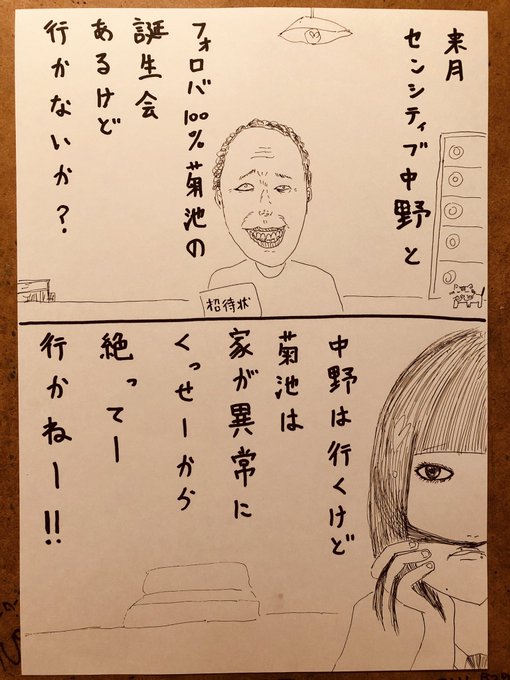 来月
センシティブ中野と
フォロバ100%菊池の
誕生会
あるけど
行かないか?
招待状
中野は行くけど
菊池は
家が異常に
くっせーから
絶ってー
行かねー!!